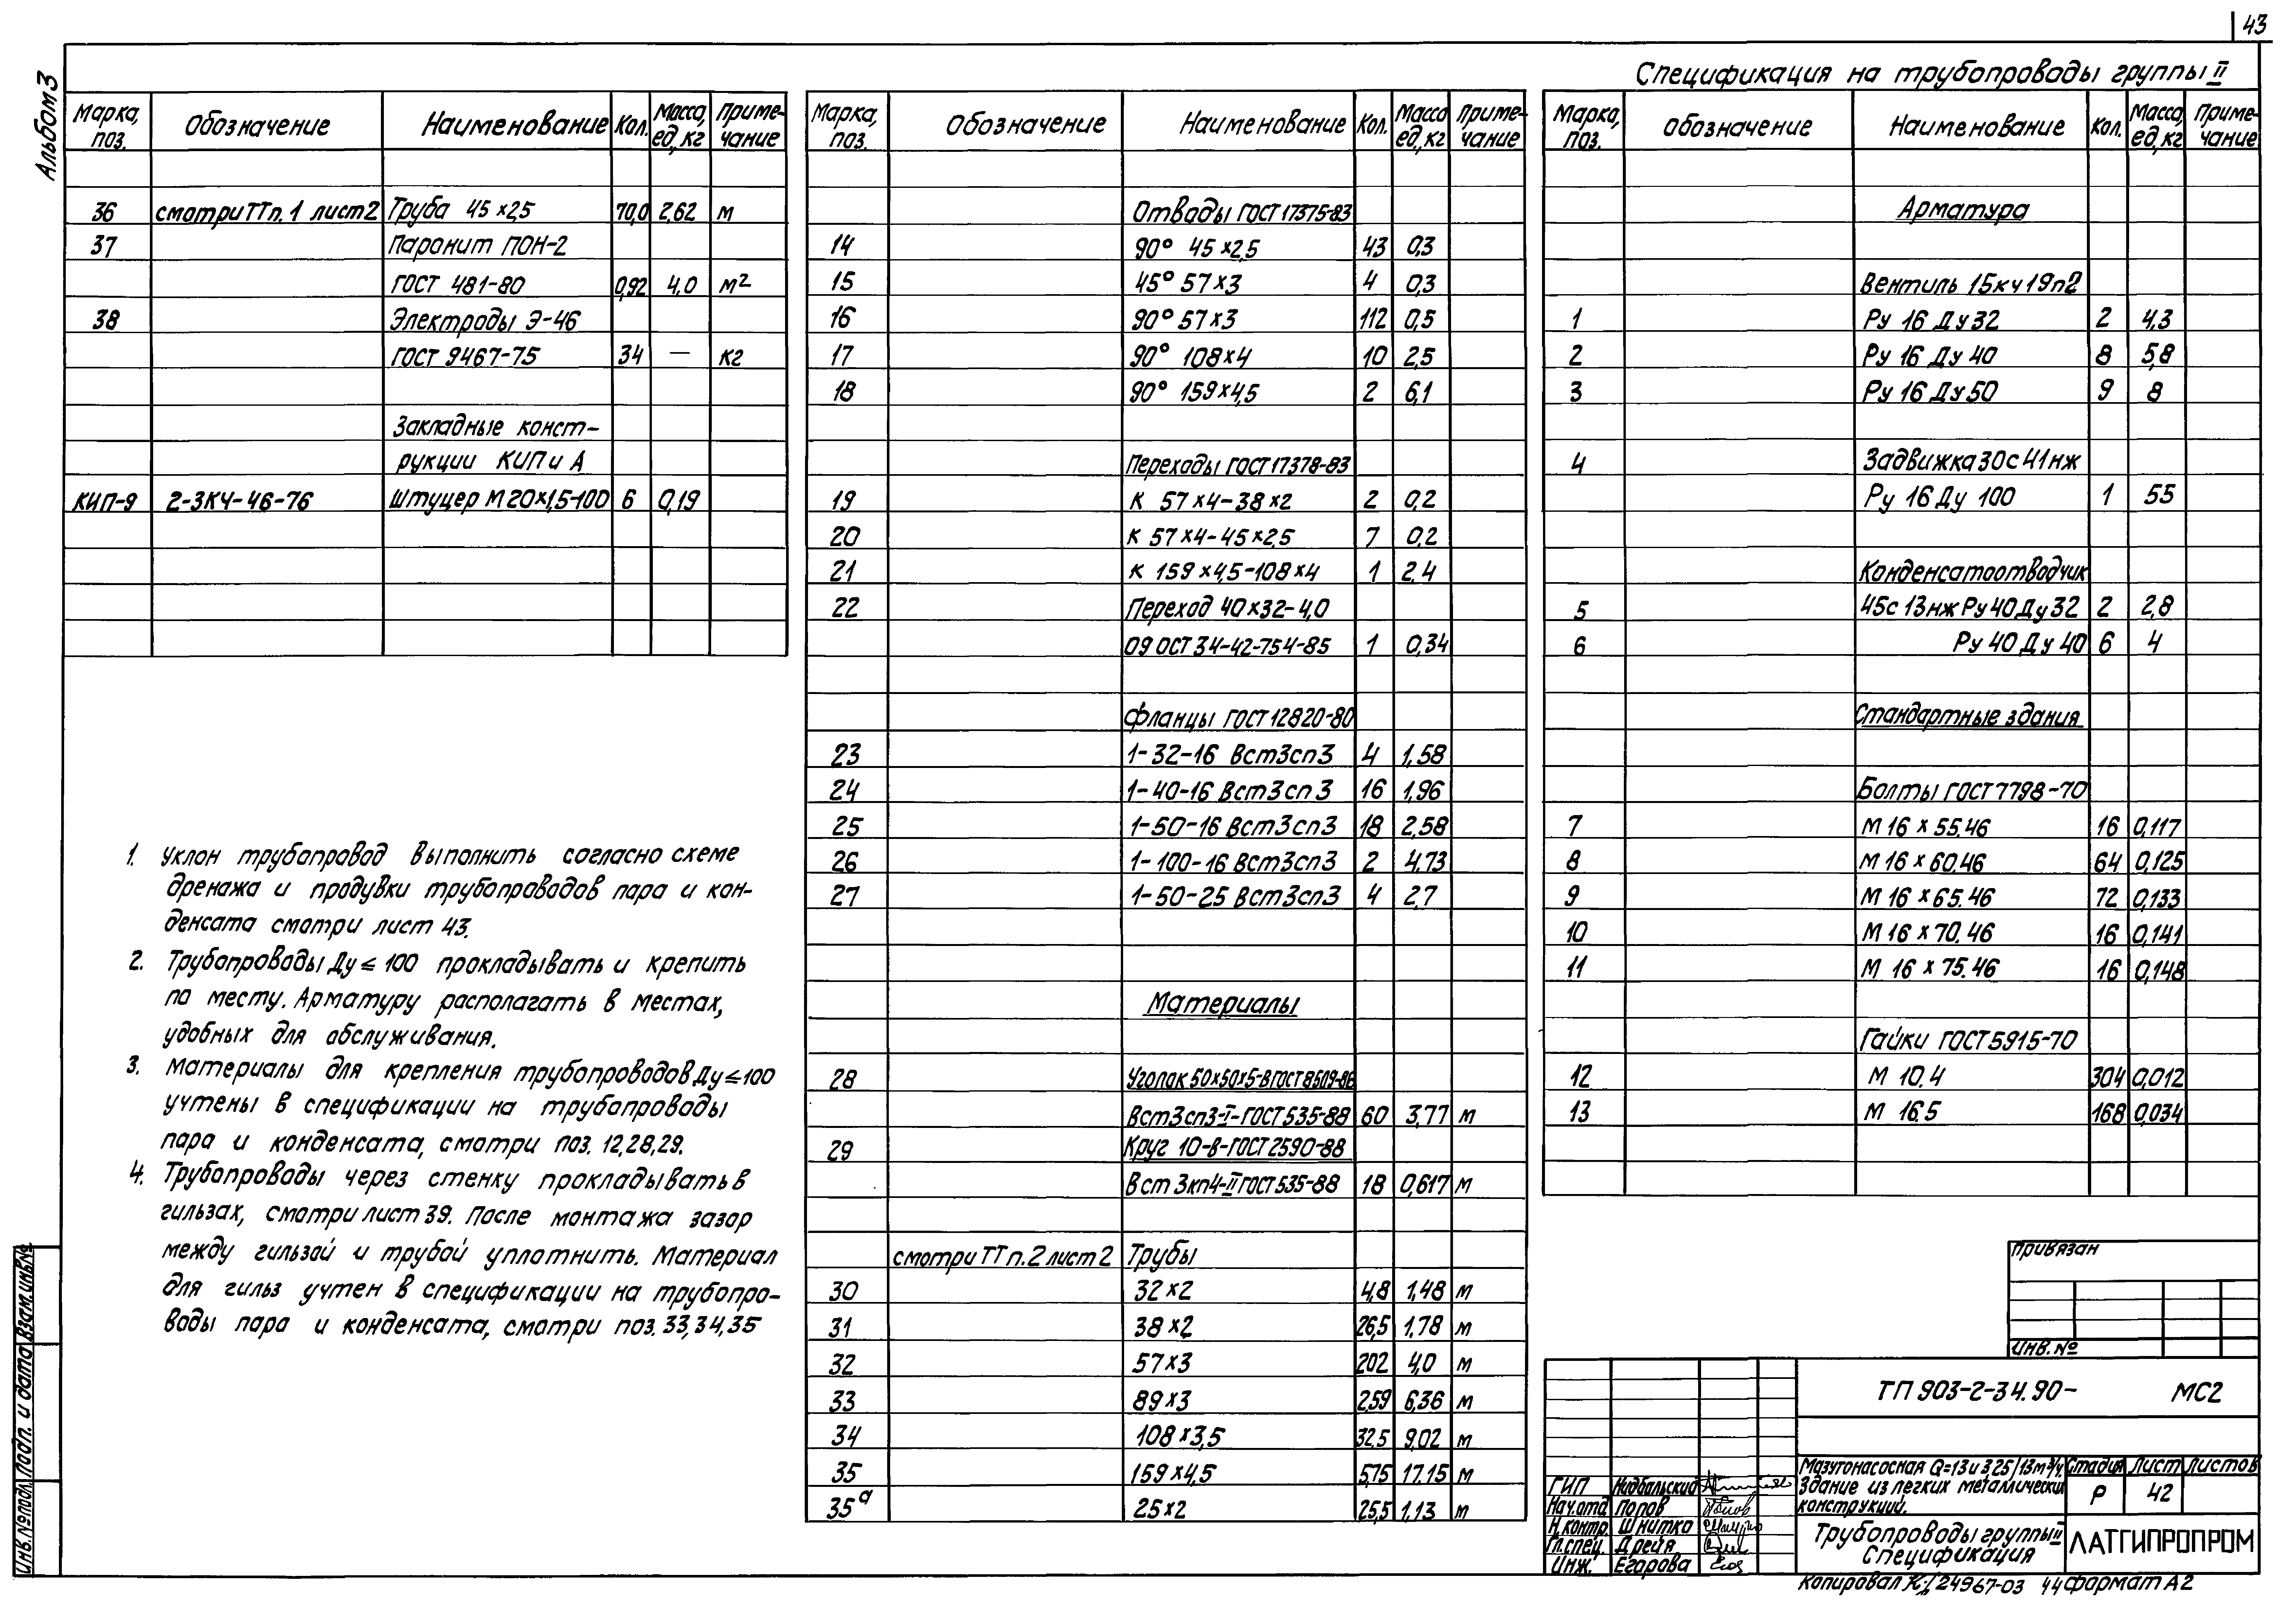 43
Альбом 3
Спецификация на трубопроводы группы II
Марка, поз. Обозначение Наименование Кол. Масса, ед, кг Примечание
36 смотри ТТ п. 1 лист 2 Труба 45×2,5 70,0 2,62 м
37 Паронит ПОН-2
ГОСТ 481-80 0,92 4,0 м²
38 Электроды Э-46
ГОСТ 9467-75 34 — кг
Закладные конст-
рукции КИП и А
КИП-9 2-ЗКЧ-46-76 Штуцер М20×1,5-100 6 0,19
1. Уклон трубопровод выполнить согласно схеме
дренажа и продувки трубопроводов пара и кон-
денсата смотри лист 43.
2. Трубопроводы Ду ≤ 100 прокладывать и крепить
по месту. Арматуру располагать в местах,
удобных для обслуживания.
3. Материалы для крепления трубопроводов Ду ≤ 100
учтены в спецификации на трубопроводы
пара и конденсата, смотри поз. 12,28,29.
4. Трубопроводы через стенку прокладывать в
гильзах, смотри лист 39. После монтажа зазор
между гильзой и трубой уплотнить. Материал
для гильз учтен в спецификации на трубопро-
воды пара и конденсата, смотри поз. 33,34,35
Марка, поз. Обозначение Наименование Кол. Масса ед, кг Приме-чание
Отводы ГОСТ 17375-83
14 90° 45×2,5 43 0,3
15 45° 57×3 4 0,3
16 90° 57×3 112 0,5
17 90° 108×4 10 2,5
18 90° 159×4,5 2 6,1
Переходы ГОСТ 17378-83
19 К 57×4-38×2 2 0,2
20 К 57×4-45×2,5 7 0,2
21 К 159×4,5-108×4 1 2,4
22 Переход 40×32-4,0
09 ОСТ 34-42-754-85 1 0,34
Фланцы ГОСТ 12820-80
23 1-32-16 Вст3сп3 4 1,58
24 1-40-16 Вст3сп3 16 1,96
25 1-50-16 Вст3сп3 18 2,58
26 1-100-16 Вст3сп3 2 4,73
27 1-50-25 Вст3сп3 4 2,7
Материалы
28 Уголок 50×50×5-В ГОСТ 8509-86
Вст3сп3-I-ГОСТ 535-88 60 3,77 м
29 Круг 10-В-ГОСТ 2590-88
Вст 3кп4-II ГОСТ 535-88 18 0,617 м
смотри ТТ п. 2 лист 2 Трубы
30 32×2 4,8 1,48 м
31 38×2 26,5 1,78 м
32 57×3 202 4,0 м
33 89×3 2,59 6,36 м
34 108×3,5 32,5 9,02 м
35 159×4,5 5,75 17,15 м
35ᵃ 25×2 25,5 1,13 м
Марка, поз. Обозначение Наименование Кол. Масса, ед, кг Приме-чание
Арматура
Вентиль 15кч19п2
1 Ру 16 Ду 32 2 4,3
2 Ру 16 Ду 40 8 5,8
3 Ру 16 Ду 50 9 8
4 Задвижка 30с41нж
Ру 16 Ду 100 1 55
Конденсатоотводчик
5 45с 13нж Ру 40 Ду 32 2 2,8
6 Ру 40 Ду 40 6 4
Стандартные здания
Болты ГОСТ 7798-70
7 М 16 × 55.46 16 0,117
8 М 16 × 60.46 64 0,125
9 М 16 × 65.46 72 0,133
10 М 16 × 70.46 16 0,141
11 М 16 × 75.46 16 0,148
Гайки ГОСТ 5915-70
12 М 10.4 304 0,012
13 М 16.5 168 0,034
Привязан
Инв. №
ТП 903-2-34.90- МС2
Мазутонасосная Q=13 и 3,25/13 м³/ч.
Здание из легких металлических
конструкций.
Стадия Лист Листов
Р 42
Трубопроводы группы II
Спецификация
ЛАТГИПРОПРОМ
ГИП Нидбальский
Нач.отд. Попов
Н.контр. Шнитко
Гл.спец. Дрейя
Инж. Егорова
Копировал 24967-03 44 формат А2
Инв. № подл. Подп. и дата Взам. инв. №